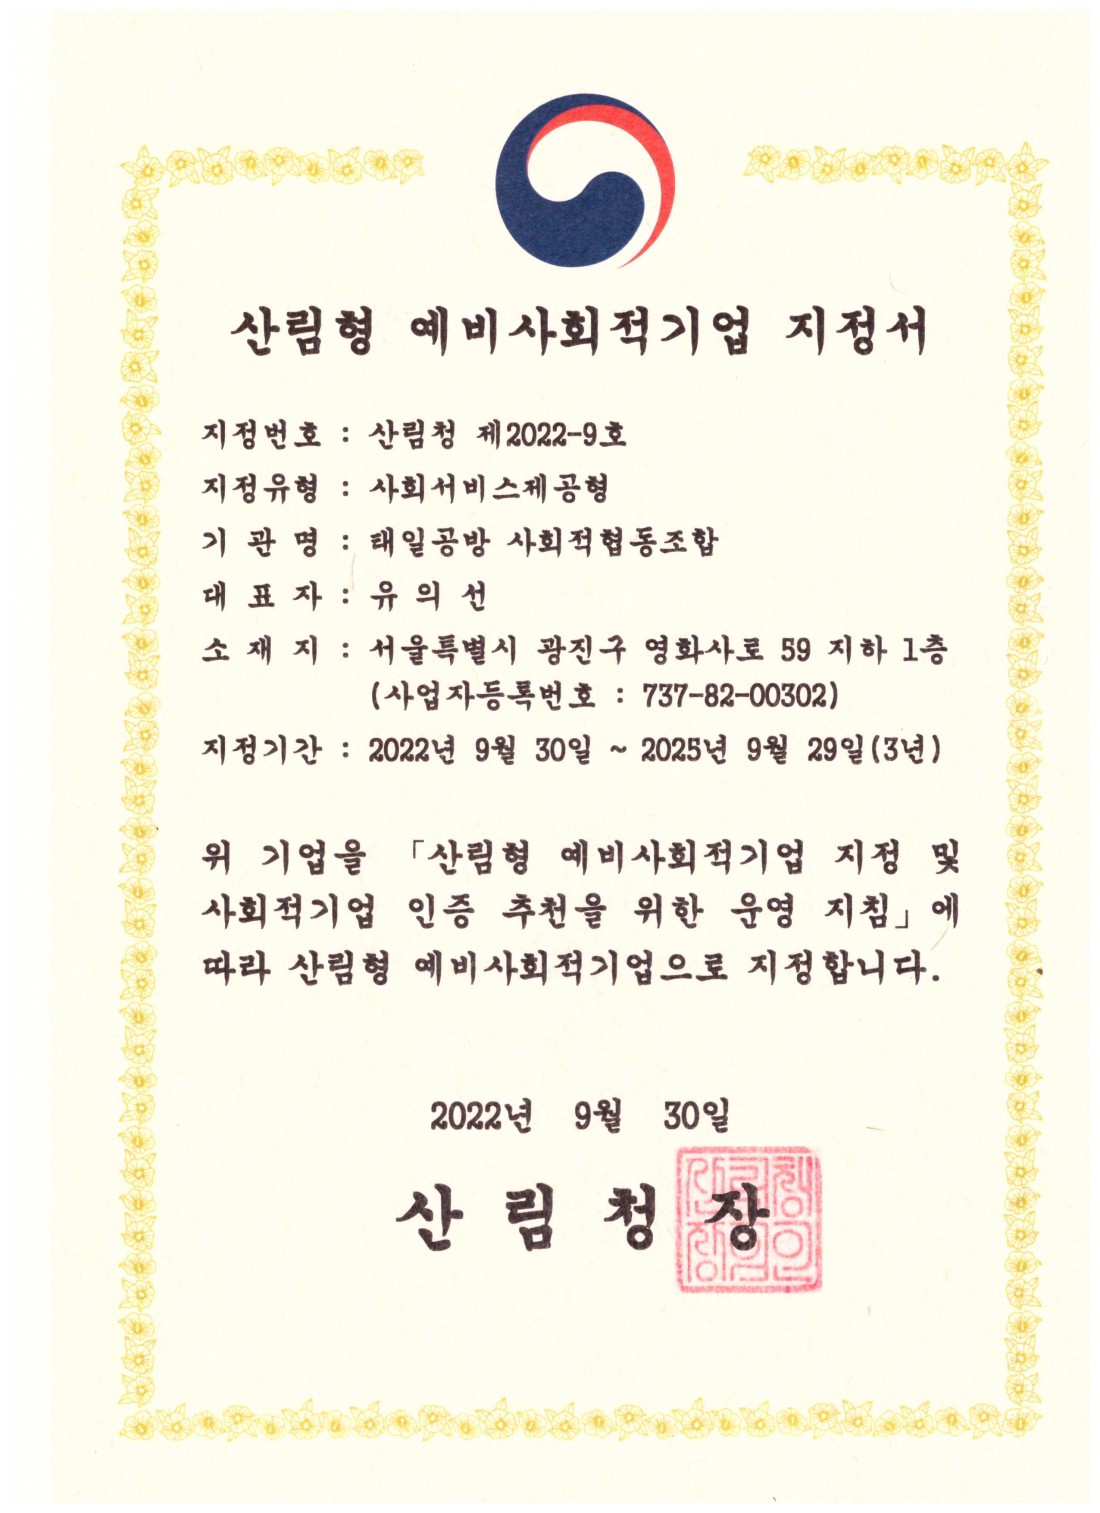 산림형 예비사회적기업 지정서
지정번호 : 산림청 제2022-9호
지정유형 : 사회서비스제공형
기 관 명 : 태일공방 사회적협동조합
대 표 자 : 유 의 선
소 재 지 : 서울특별시 광진구 영화사로 59 지하 1층
(사업자등록번호 : 737-82-00302)
지정기간 : 2022년 9월 30일 ~ 2025년 9월 29일(3년)
위 기업을 「산림형 예비사회적기업 지정 및
사회적기업 인증 추천을 위한 운영 지침」에
따라 산림형 예비사회적기업으로 지정합니다.
2022년 9월 30일
산 림 청 장